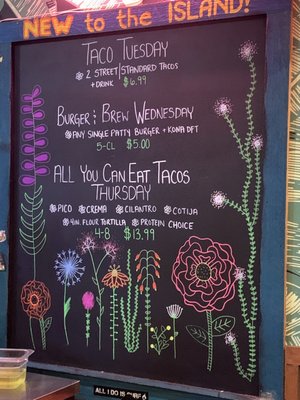 NEW to the ISLAND!
TACO TUESDAY
2 STREET/STANDARD TACOS
+ DRINK $6.99
BURGER & BREW WEDNESDAY
ANY SINGLE PATTY BURGER + KONA DFT
5-CL $5.00
ALL YOU CAN EAT TACOS
THURSDAY
PICO CREMA CILANTRO COTIJA
4IN. FLOUR TORTILLA PROTEIN CHOICE
4-8 $13.99
ALL I DO IS